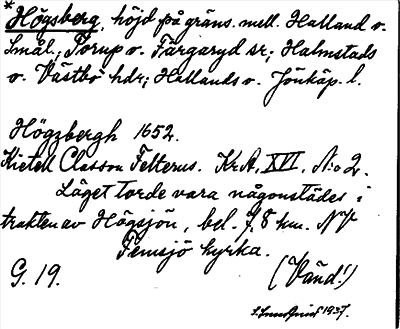 *Högsberg, höjd på gräns. mell. Halland o.
Smål., Torup o. Färgaryd sr; Halmstads
o. Västbo hdr; Hallands o. Jönköp. l.
Högzbergh 1652.
Kietell Classon Felterus. KrA, XVI, N:o 2.
Läget torde vara någonstädes i
trakten av Högsjön, bel. 7,8 km. NV
Femsjö kyrka.
G. 19. (Vänd!)
1937.